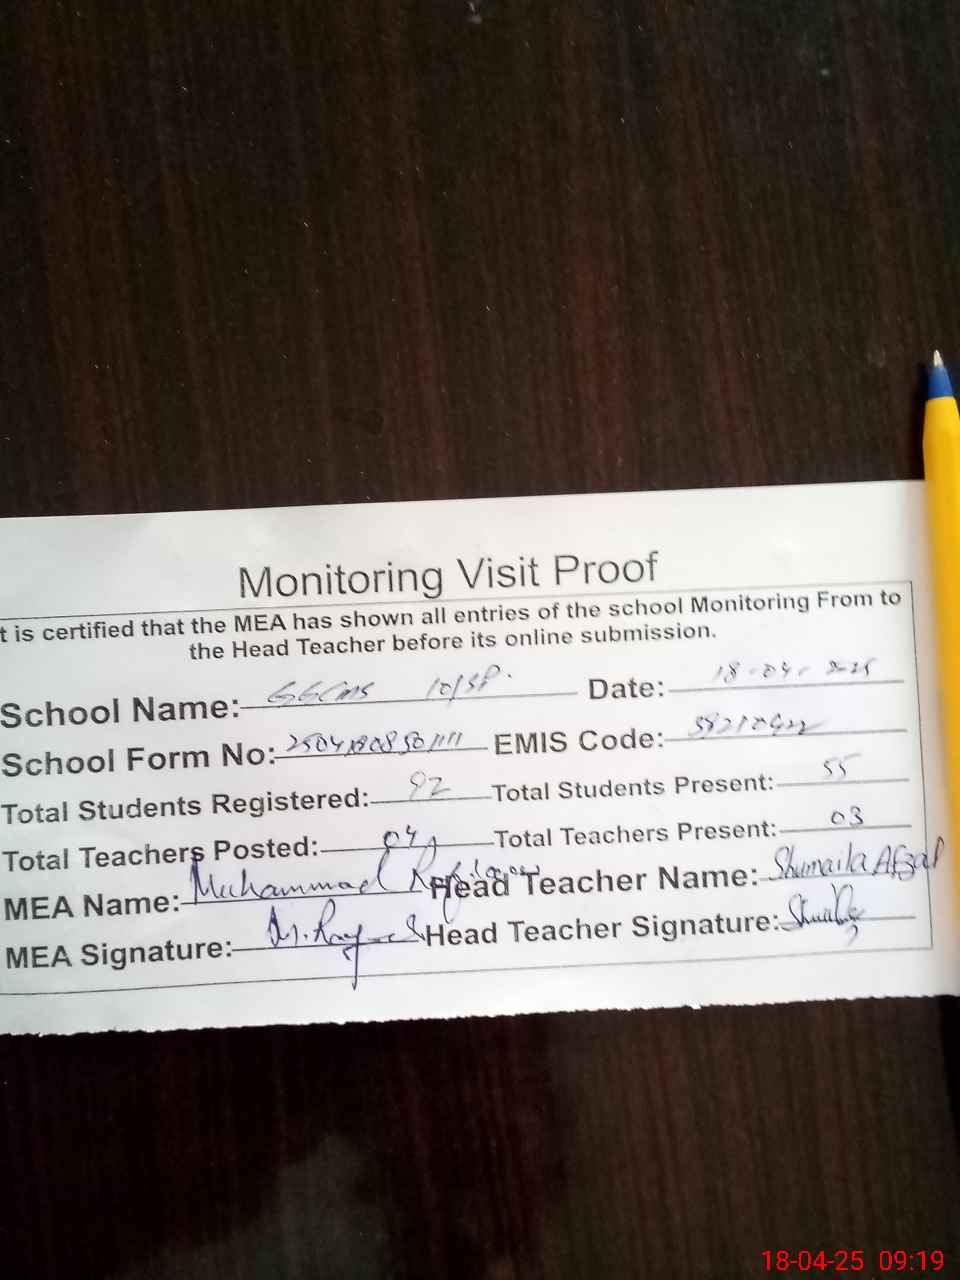 Monitoring Visit Proof
t is certified that the MEA has shown all entries of the school Monitoring From to
the Head Teacher before its online submission.
School Name: GGCMS 10/SP. Date: 18-04-2025
School Form No: EMIS Code:
Total Students Registered: 92 Total Students Present: 55
Total Teachers Posted: 04 Total Teachers Present: 03
MEA Name: Muhammad Head Teacher Name: Shumaila Afzal
MEA Signature: Head Teacher Signature:
18-04-25 09:19